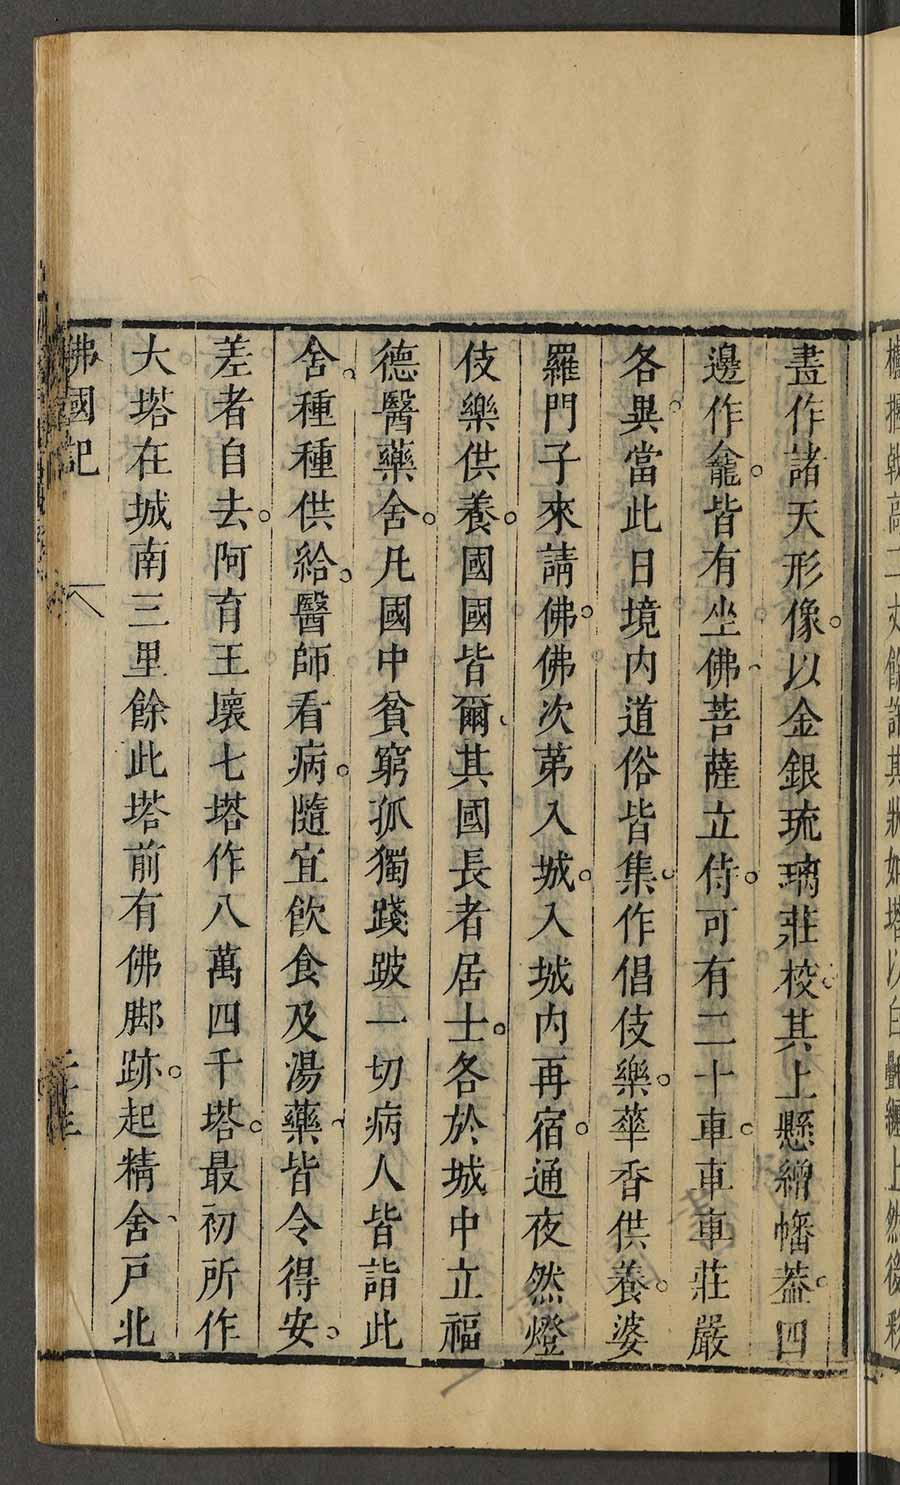 畫作諸天形像。以金銀琉璃莊校。其上懸繒幡葢。四
邊作龕。皆有坐佛、菩薩立侍。可有二十車。車車莊嚴
各異。當此日境內道俗皆集、作倡伎樂。華香供養。婆
羅門子來請佛。佛次苐入城。入城內再宿。通夜然燈
伎樂供養。國國皆爾、其國長者居士。各於城中立福
德醫藥舍。凡國中貧窮孤獨踐跛一切病人皆詣此
舍、種種供給。醫師看病。隨宜飲食及湯藥、皆令得安。
差者自去。阿育王壞七塔作八萬四千塔。最初所作
大塔在城南三里餘此塔前有佛脚跡。起精舍、戸北
佛國記